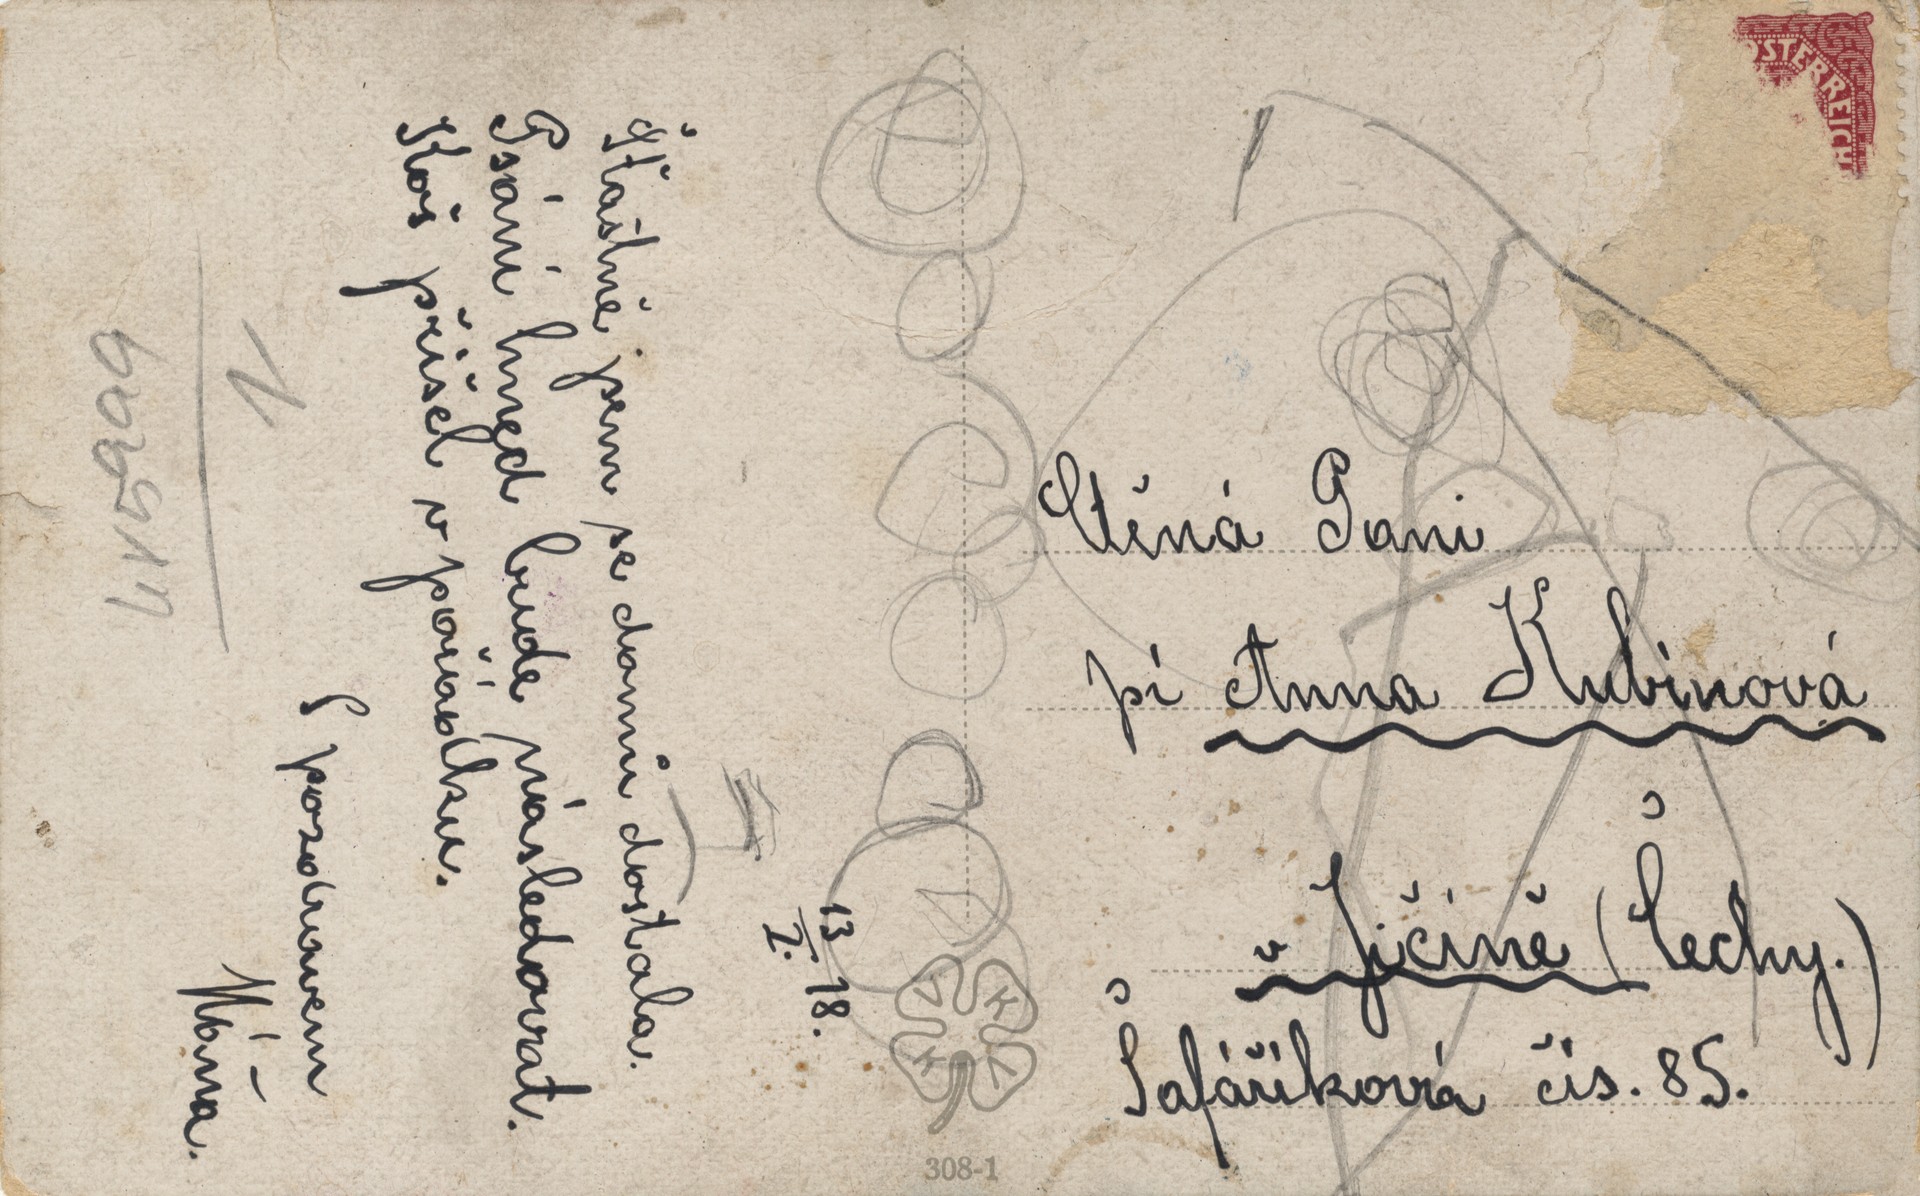 13/I. 18.
Šťastně jsem se domů dostala.
Psaní hned bude následovat.
Koš přišel v pořádku.
S pozdravem
Máňa.
Ctěná Paní
pí Anna Kubinová
v Jičíně (Čechy.)
Šafaříková čís. 85.
ÖSTERREICH
K V K V
308-1